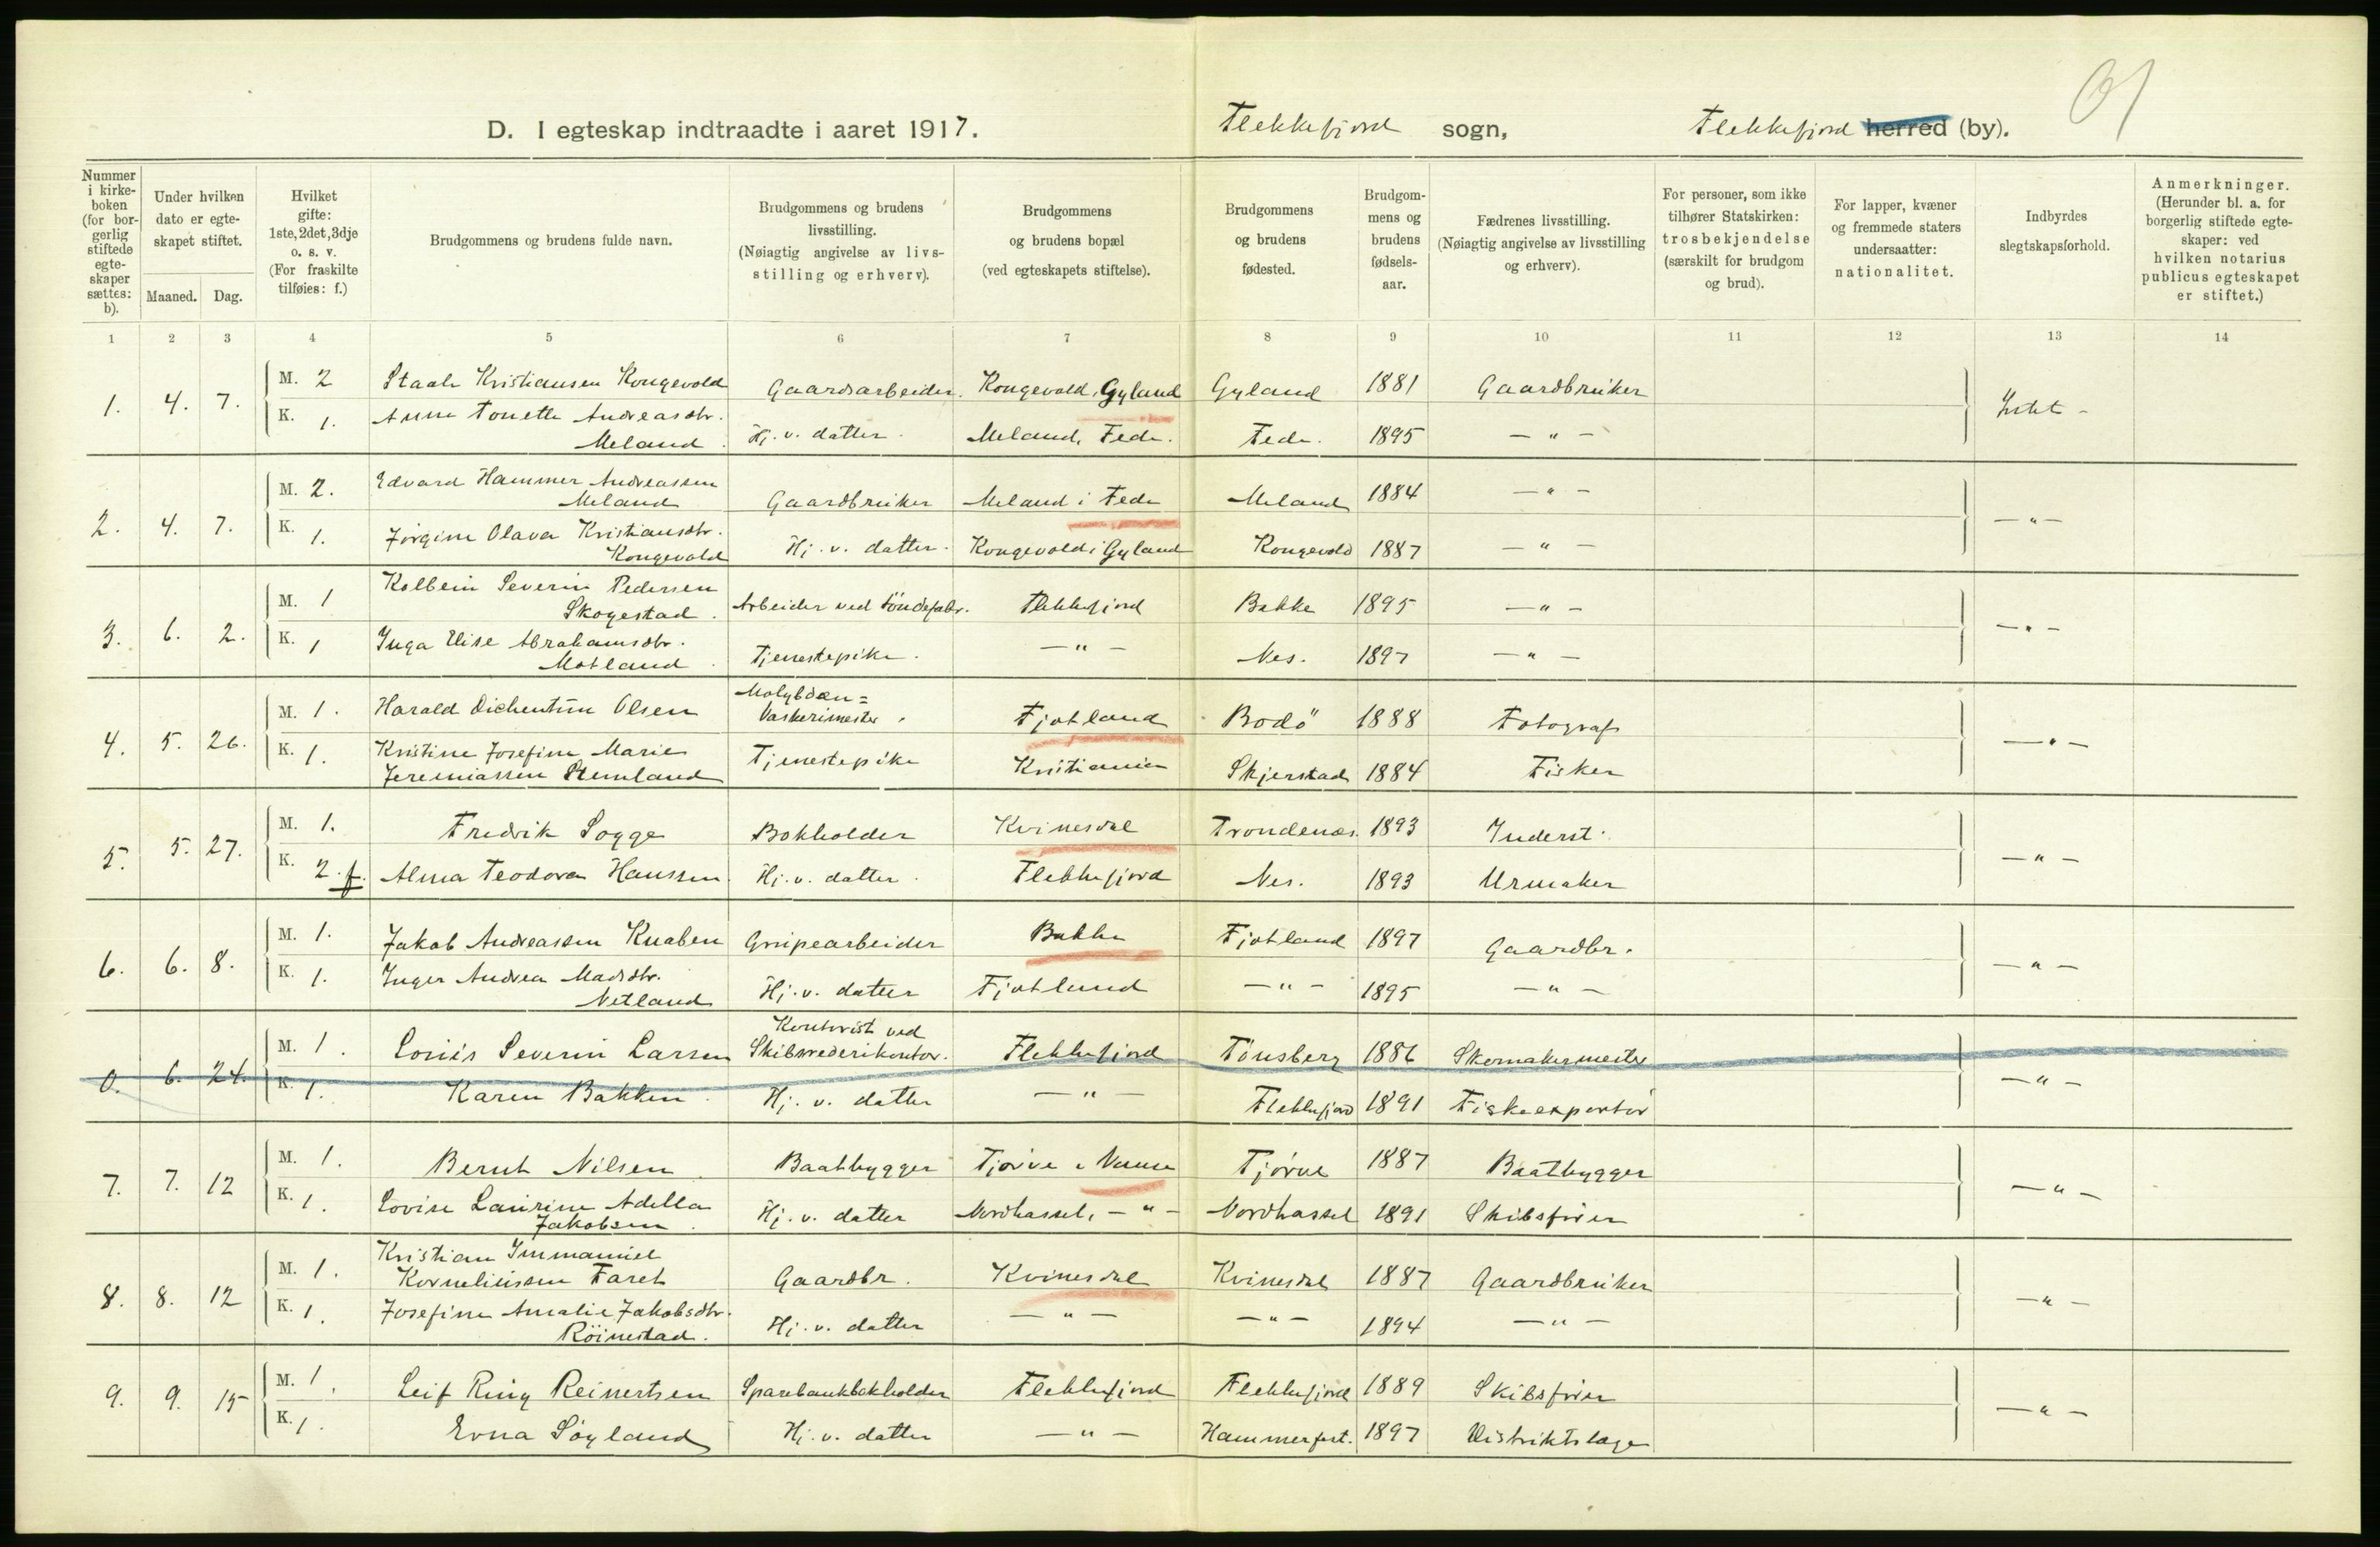 D. I egteskap indtraadte i aaret 1917. Flekkefjord sogn, Flekkefjord herred (by).
Nummer i kirkeboken (for borgerlig stiftede egteskaper sættes: b).
Under hvilken dato er egteskapet stiftet.
Maaned. Dag.
Hvilket gifte: 1ste, 2det, 3dje o. s. v. (For fraskilte tilføies: f.)
Brudgommens og brudens fulde navn.
Brudgommens og brudens livsstilling. (Nøiagtig angivelse av livsstilling og erhverv).
Brudgommens og brudens bopæl (ved egteskapets stiftelse).
Brudgommens og brudens fødested.
Brudgommens og brudens fødselsaar.
Fædrenes livsstilling. (Nøiagtig angivelse av livsstilling og erhverv).
For personer, som ikke tilhører Statskirken: trosbekjendelse (særskilt for brudgom og brud).
For lapper, kvæner og fremmede staters undersaatter: nationalitet.
Indbyrdes slegtskapsforhold.
Anmerkninger. (Herunder bl. a. for borgerlig stiftede egteskaper: ved hvilken notarius publicus egteskapet er stiftet.)
1 2 3 4 5 6 7 8 9 10 11 12 13 14
1. 4. 7. M. 2 Staale Kristiansen Kongevold Gaardsarbeider. Kongevold, Gyland Gyland 1881 Gaardbruker
K. 1. Anne Tonette Andreasdtr. Meland. Hj. v. datter. Meland, Fede. Fede. 1895 — " — Intet -
2. 4. 7. M. 2. Edvard Hammer Andreassen Meland Gaardbruker Meland i Fede Meland 1884 — " —
K. 1. Jørgine Olava Kristiansdtr. Kongevold Hj. v. datter. Kongevold i Gyland Kongevold 1887 — " — — " —
3. 6. 2. M. 1 Kolbein Severin Pedersen Skogestad. Arbeider ved töndefabr. Flekkefjord Bakke 1895 — " —
K. 1 Inga Elise Abrahamsdtr. Motland. Tjenestepike. — " — Nes. 1897 — " — — " —
4. 5. 26. M. 1. Harald Dichentün Olsen Molybdæn= Vaskerimester. Fjotland Bodö 1888 Fotograf
K. 1. Kristine Josefine Marie Jeremiassen Stemland Tjenestepike Kristiania Skjerstad 1884 Fisker — " —
5. 5. 27. M. 1. Fredrik Sogge Bokholder Kvinesdal Trondenæs. 1893 Inderst.
K. 2. f. Alma Teodora Hanssen. Hj. v. datter. Flekkefjord Nes. 1893 Urmaker — " —
6. 6. 8. M. 1. Jakob Andreassen Knaben Grupearbeider Bakke Fjotland 1897 Gaardbr.
K. 1. Inger Andrea Madsdtr. Netland Hj. v. datter Fjotland — " — 1895 — " — — " —
0. 6. 24. M. 1. Louis Severin Larsen Kontorist ved Skibsrederikontor. Flekkefjord Tönsberg 1886 Skomakermester
K. 1. Karen Bakken. Hj. v. datter — " — Flekkefjord 1891 Fiskeexportör — " —
7. 7. 12 M. 1. Bernt Nilsen. Baatbygger Tjörve i Vanse Tjörve 1887 Baatbygger
K. 1. Lovise Laurine Adella Jakobsen. Hj. v. datter Nordhassel, — " — Nordhassel 1891 Skibsfører — " —
8. 8. 12 M. 1. Kristian Immanuel Korneliussen Faret Gaardbr. Kvinesdal Kvinesdal 1887 Gaardbruker
K. 1. Josefine Amalie Jakobsdtr. Röinestad. Hj. v. datter — " — — " — 1894 — " — — " —
9. 9. 15 M. 1. Leif Ring Reinertsen Sparebankbokholder Flekkefjord Flekkefjord 1889 Skibsfører
K. 1. Erna Söyland Hj. v. datter — " — Hammerfest. 1897 Distriktslæge — " —